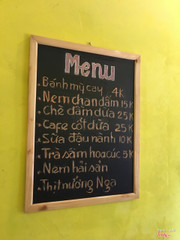 Menu
Bánh mỳ cay 4K
Nem chạn dầm 15K
Chè dầm dừa 25K
Cafe cốt dừa 25K
Sữa đậu nành 10K
Trà sâm hoa cúc 5K
Nem hải sản
Thịt nướng Nga